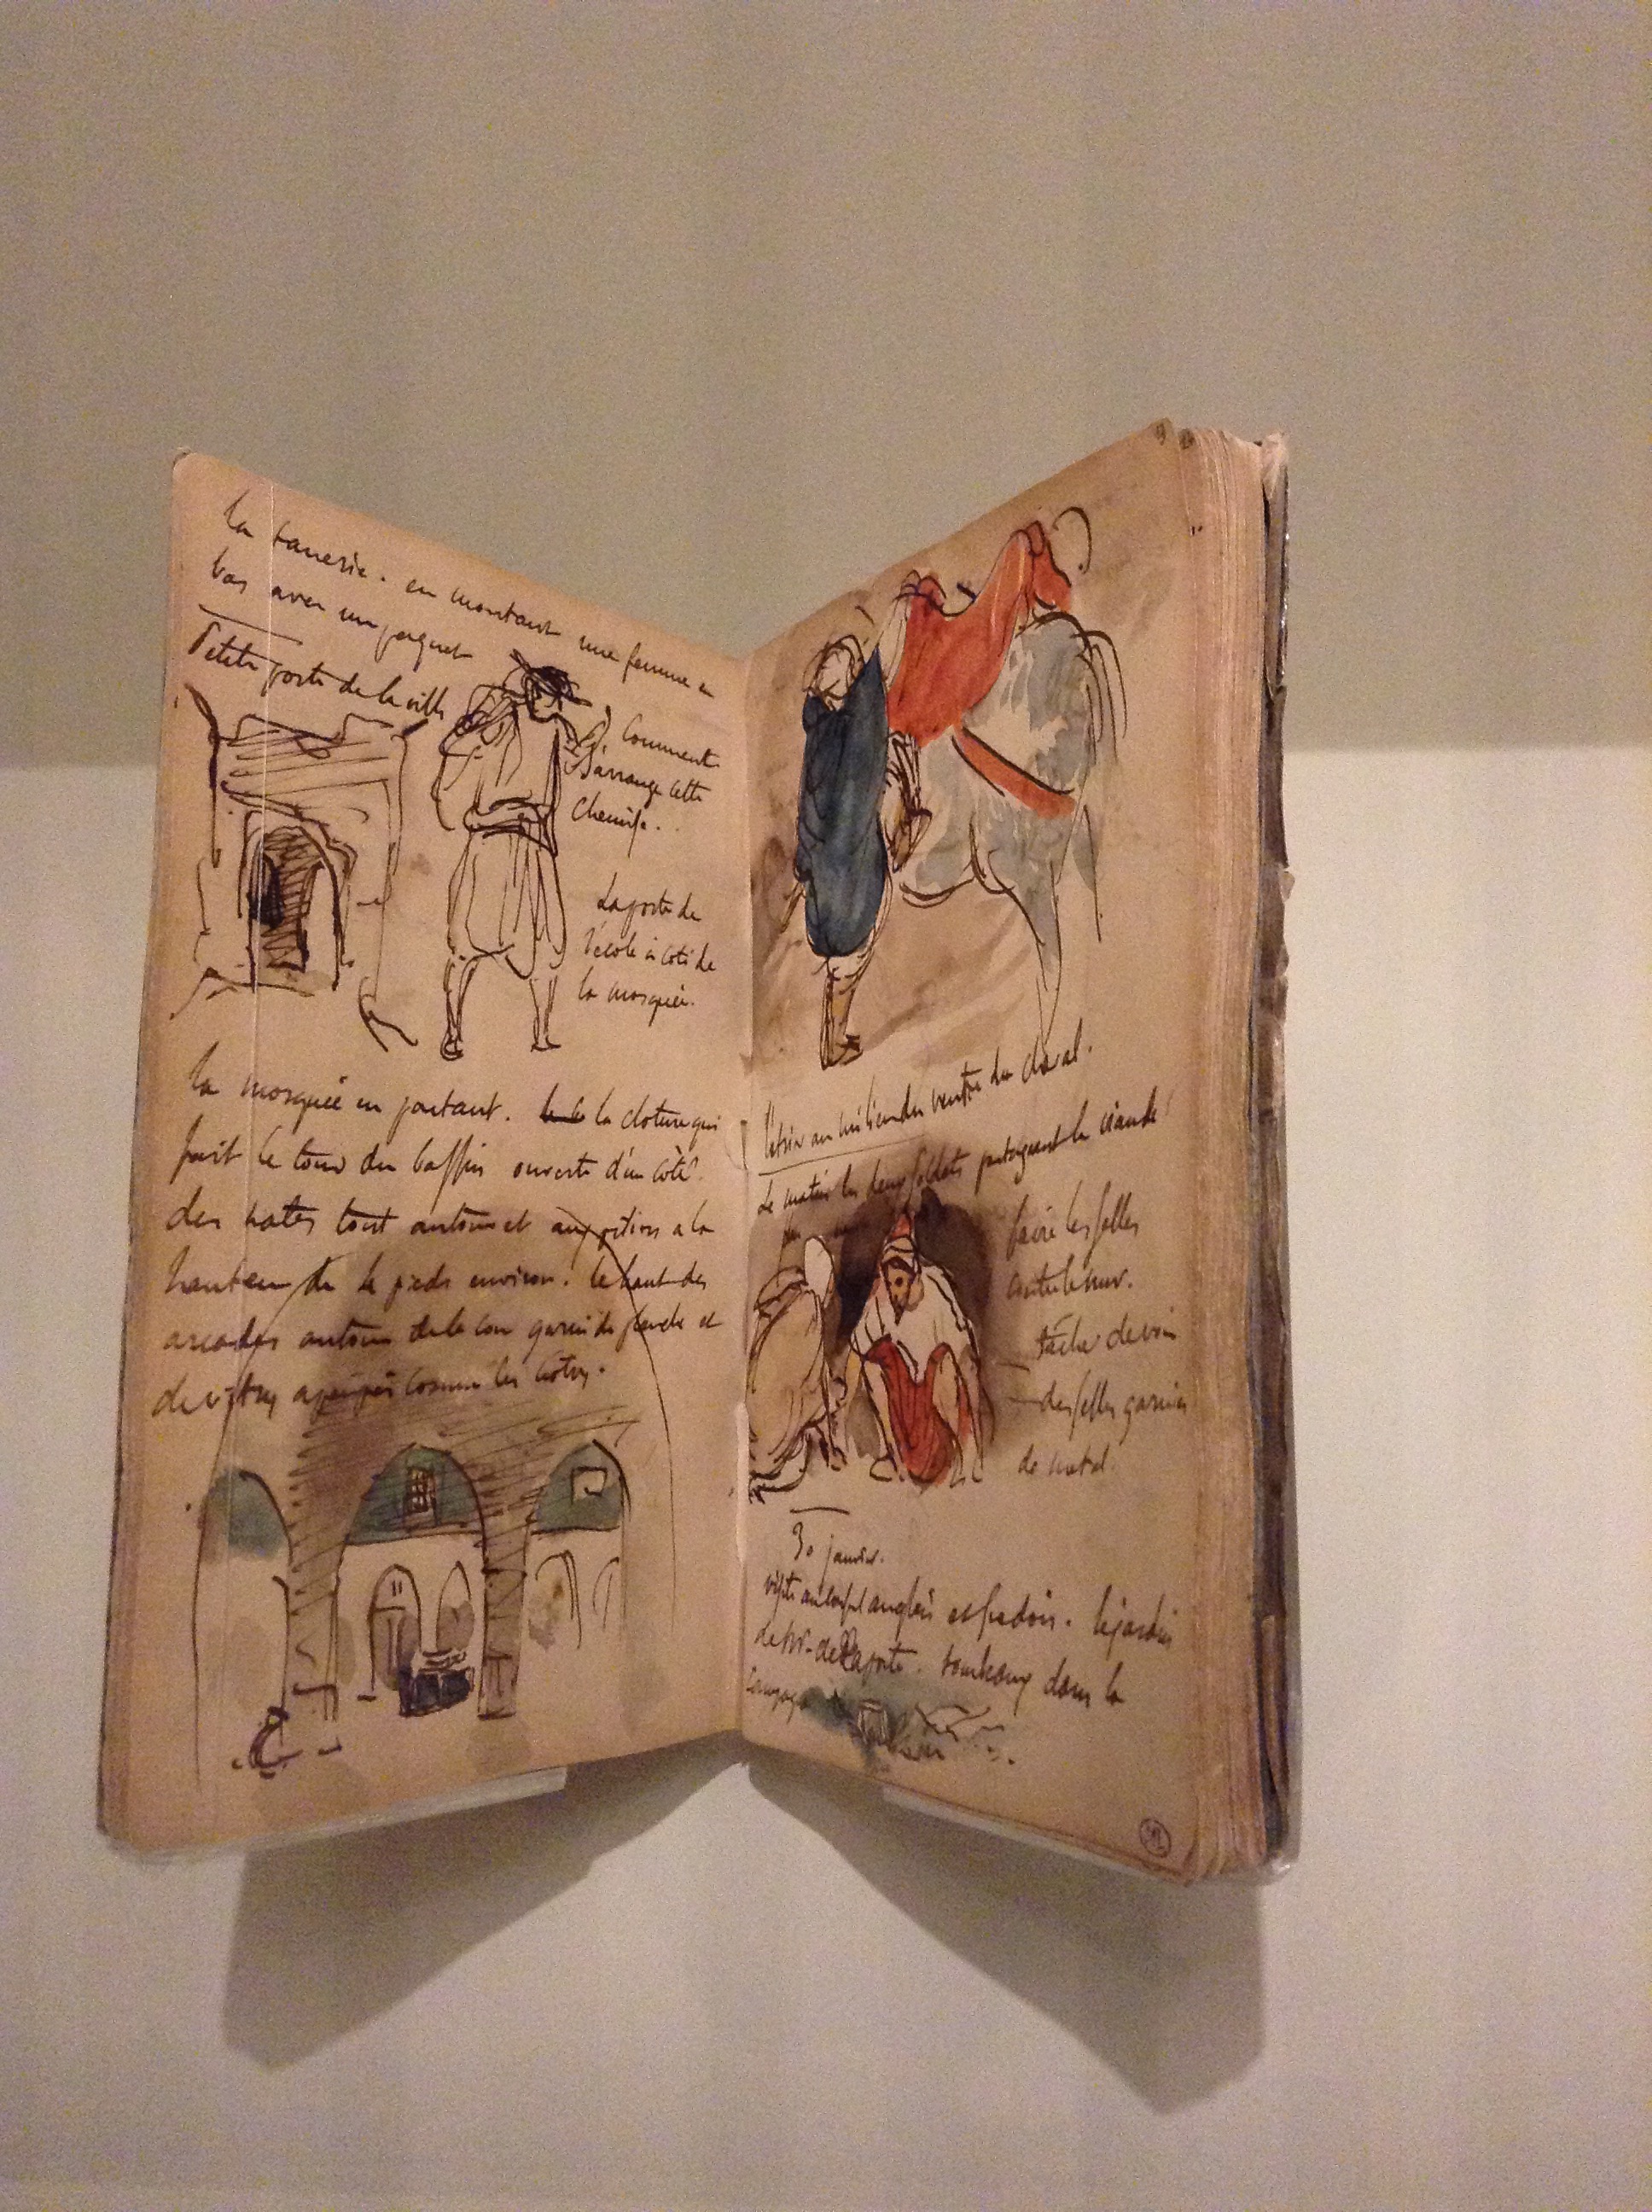 la tanerie. en montant une femme en
bas avec un paquet
Petite porte de la ville
Comment
s'arrange cette
chemise.
La porte de
l'école à coté de
la mosquée.
la mosquée en partant. la cloture qui
fait le tour du bassin ouverte d'un côté.
des nates tout autour et aux piliers a la
hauteur de 4 pieds environ. le haut des
arcades autour de la cour garni de planche et
de vitres a peu près comme les notres.
l'étrier au milieu du ventre du cheval.
Le matin les deux soldats partageant la viande
faire les selles
contre le mur.
tâche de vin
des selles garnies
de metal.
30 janvier.
visite au consul anglais et suedois. le jardin
de Mr. de Laporte. tombeaux dans la
campagne
ML